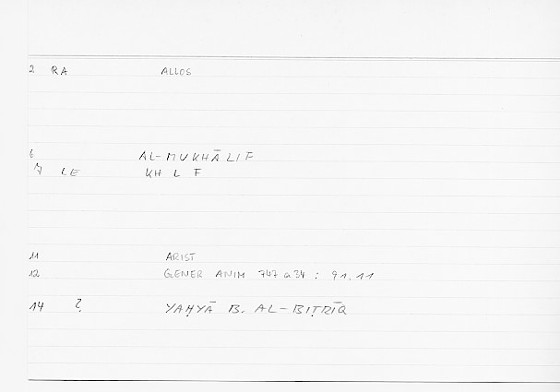 2 RA ALLOS
6 AL-MUKHĀLIF
7 LE KH L F
11 ARIST
12 GENER ANIM 747 a 34 : 91.11
14 ? YAḤYĀ B. AL-BIṬRĪQ